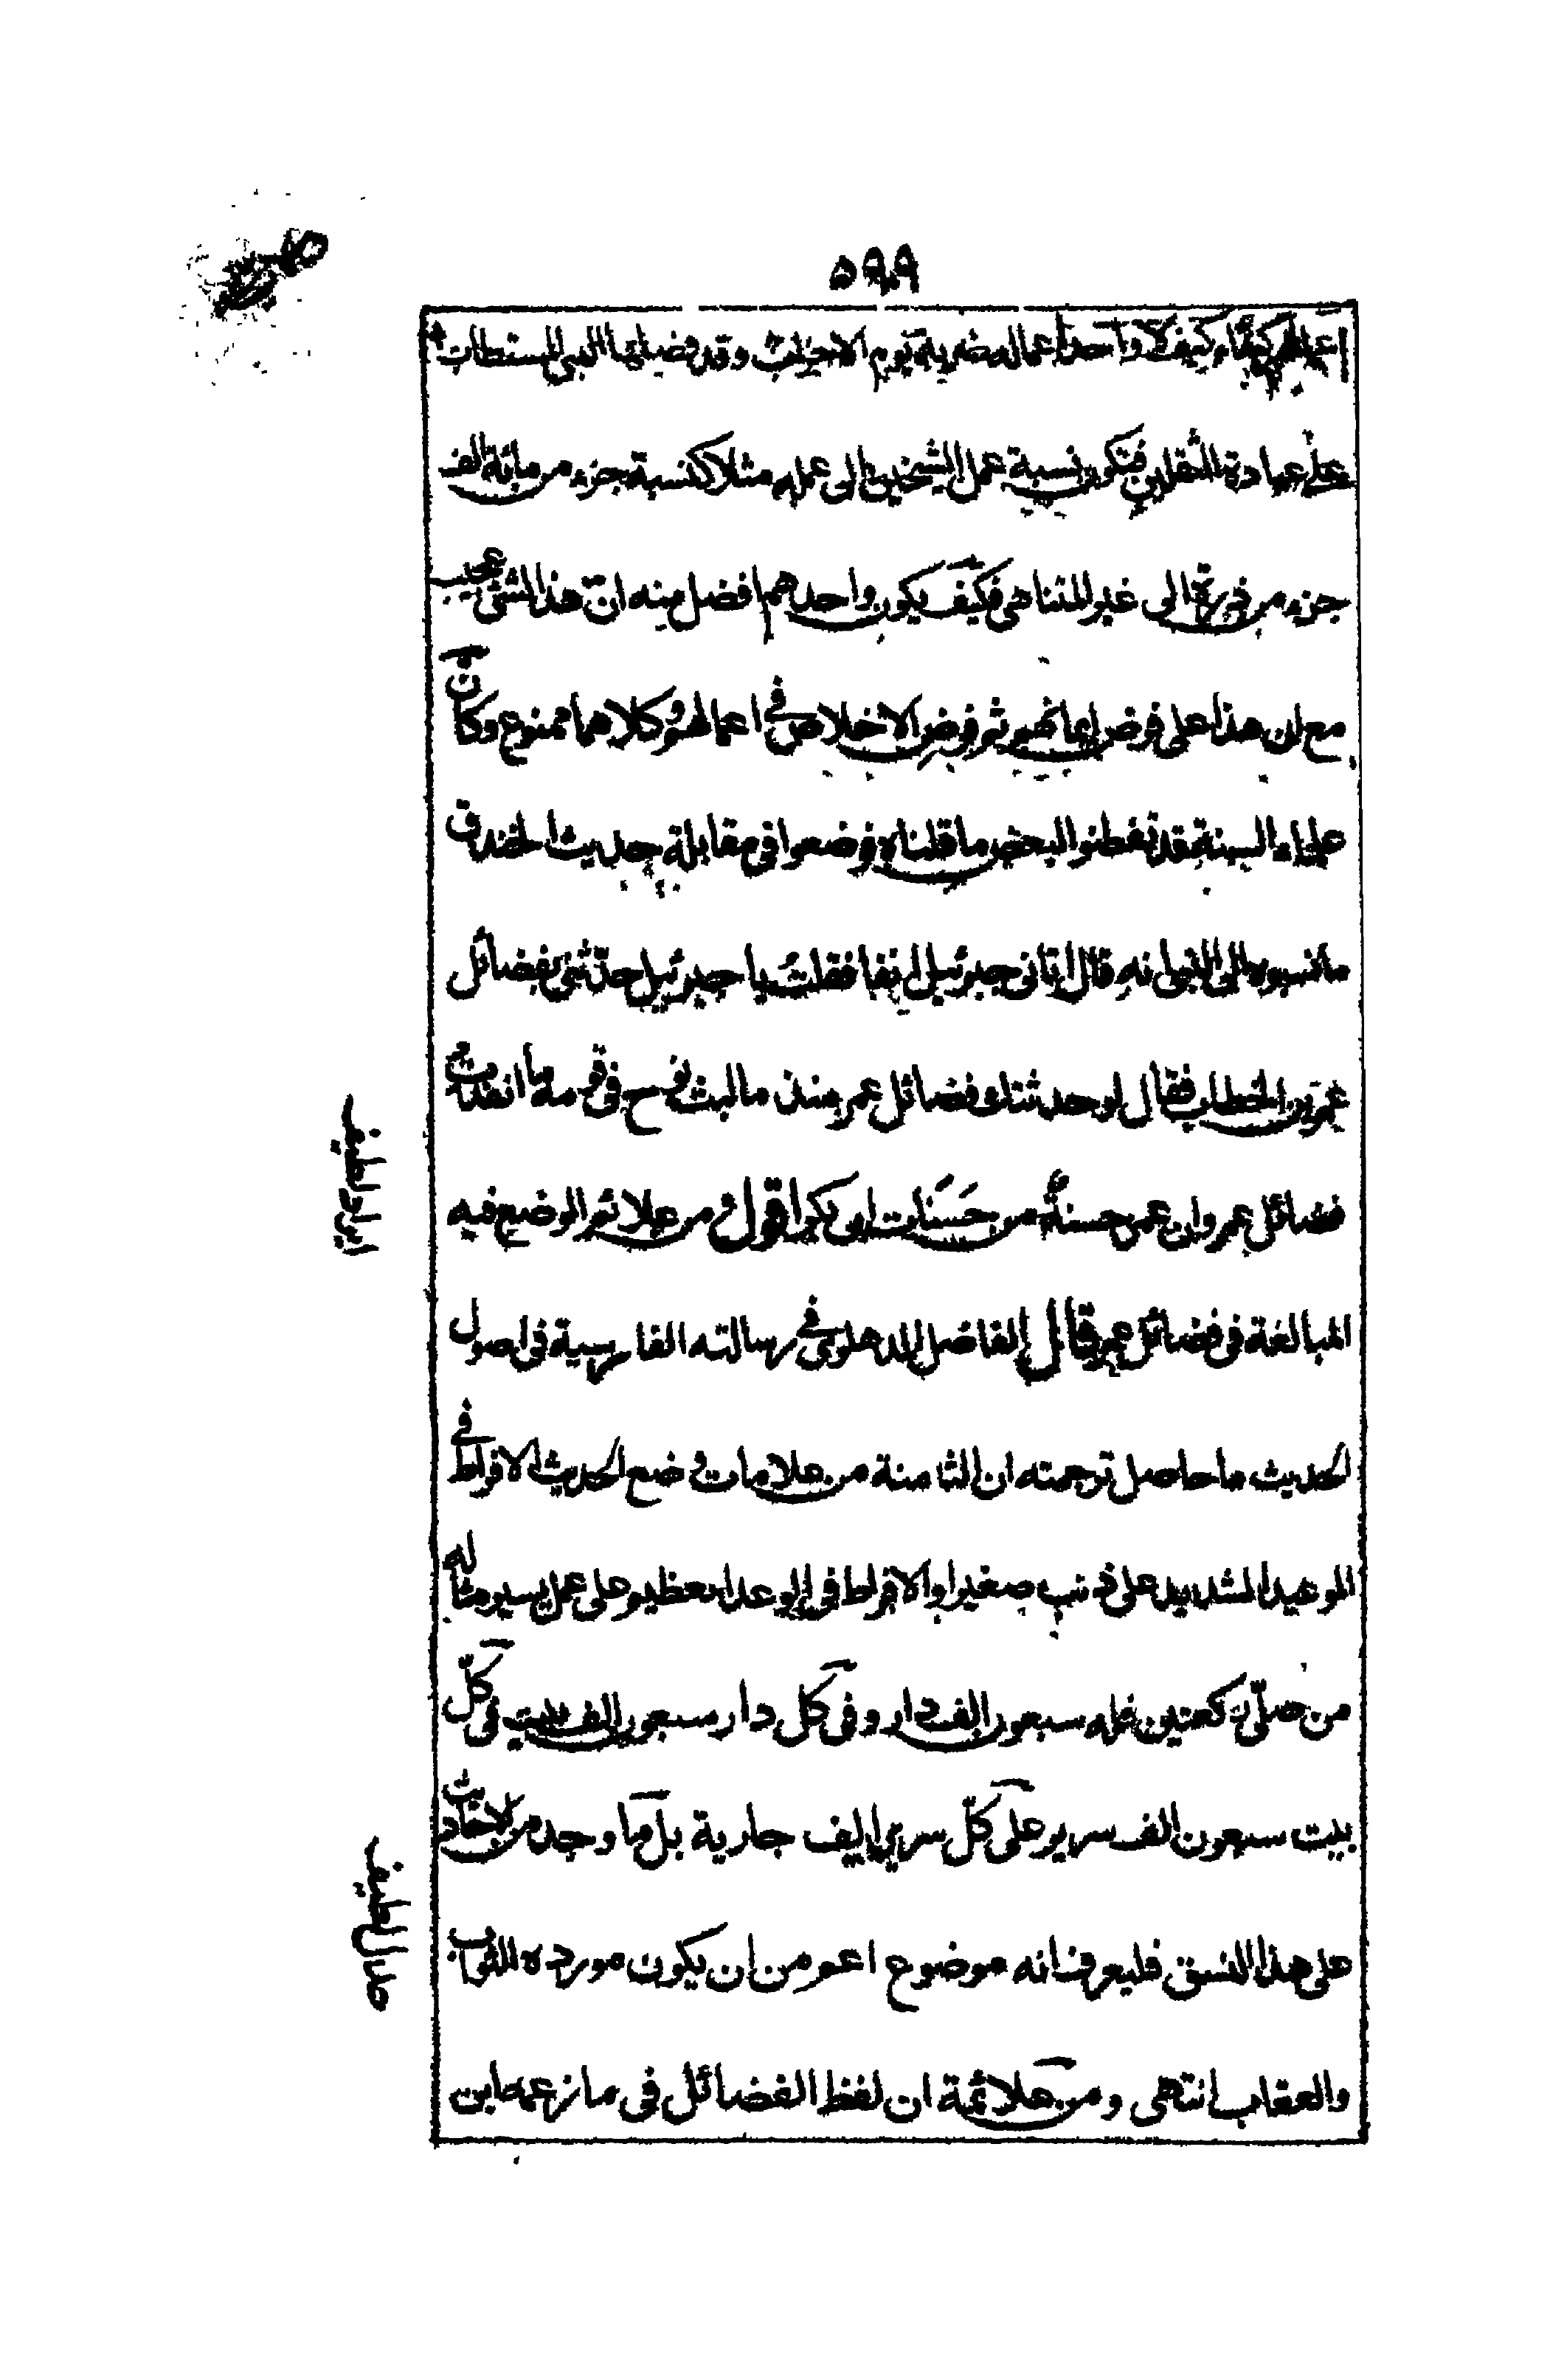 ٥٩٩
وكيف لا واحد اعماله ضربة يوم الاحزاب وقد فضلها النبي
على عبادة الثقلين فتكون نسبة عمل الشيخين الى عمله مثلا كنسبة جزء من مائة الف
جزء من الى غير المتناهى فكيف يكون واحدهم افضل منه ان هذا لشئ عجيب
مع ان هذا على فرض ايمانهم ثم فرض الاخلاص فى اعمالهم وكلاهما ممنوع وكانّ
علماء السنة قد تفطنوا لبعض ما قلناه فوضعوا فى مقابلة حديث الخندق
ما نسبوه الى النبى انه قال اتانى جبرئيل انفا فقلت يا جبرئيل حدّثنى بفضائل
عمر بن الخطاب فقال لو حدثتك فضائل عمر منذ ما لبث نوح فى قومه ما انفدت
فضائل عمر وان عمر حسنةٌ من حَسَنات ابى بكر اقول ومن علائم الوضع فيه
المبالغة فى فضائل عمر قال الفاضل الدهلوى فى رسالته الفارسية فى اصول
الحديث ما حاصل ترجمته ان الثامنة من علامات وضع الحديث الافراط فى
الوعيد الشديد على ذنب صغير او الافراط فى الوعد العظيم على عمل يسير مثاله
من صلّى ركعتين فله سبعون الف دار وفى كل دار سبعون الف بيت فى كلّ
بيت سبعون الف سرير وعلى كلّ سرير الف جارية بل ما وجد من الاحاديث
على هذا النسق فليعرف انه موضوع اعم من ان يكون مورده الثواب
والعقاب انتهى ومن علائمه ان لفظ الفضائل فى ما زعمه ابن
ايراد لطيف